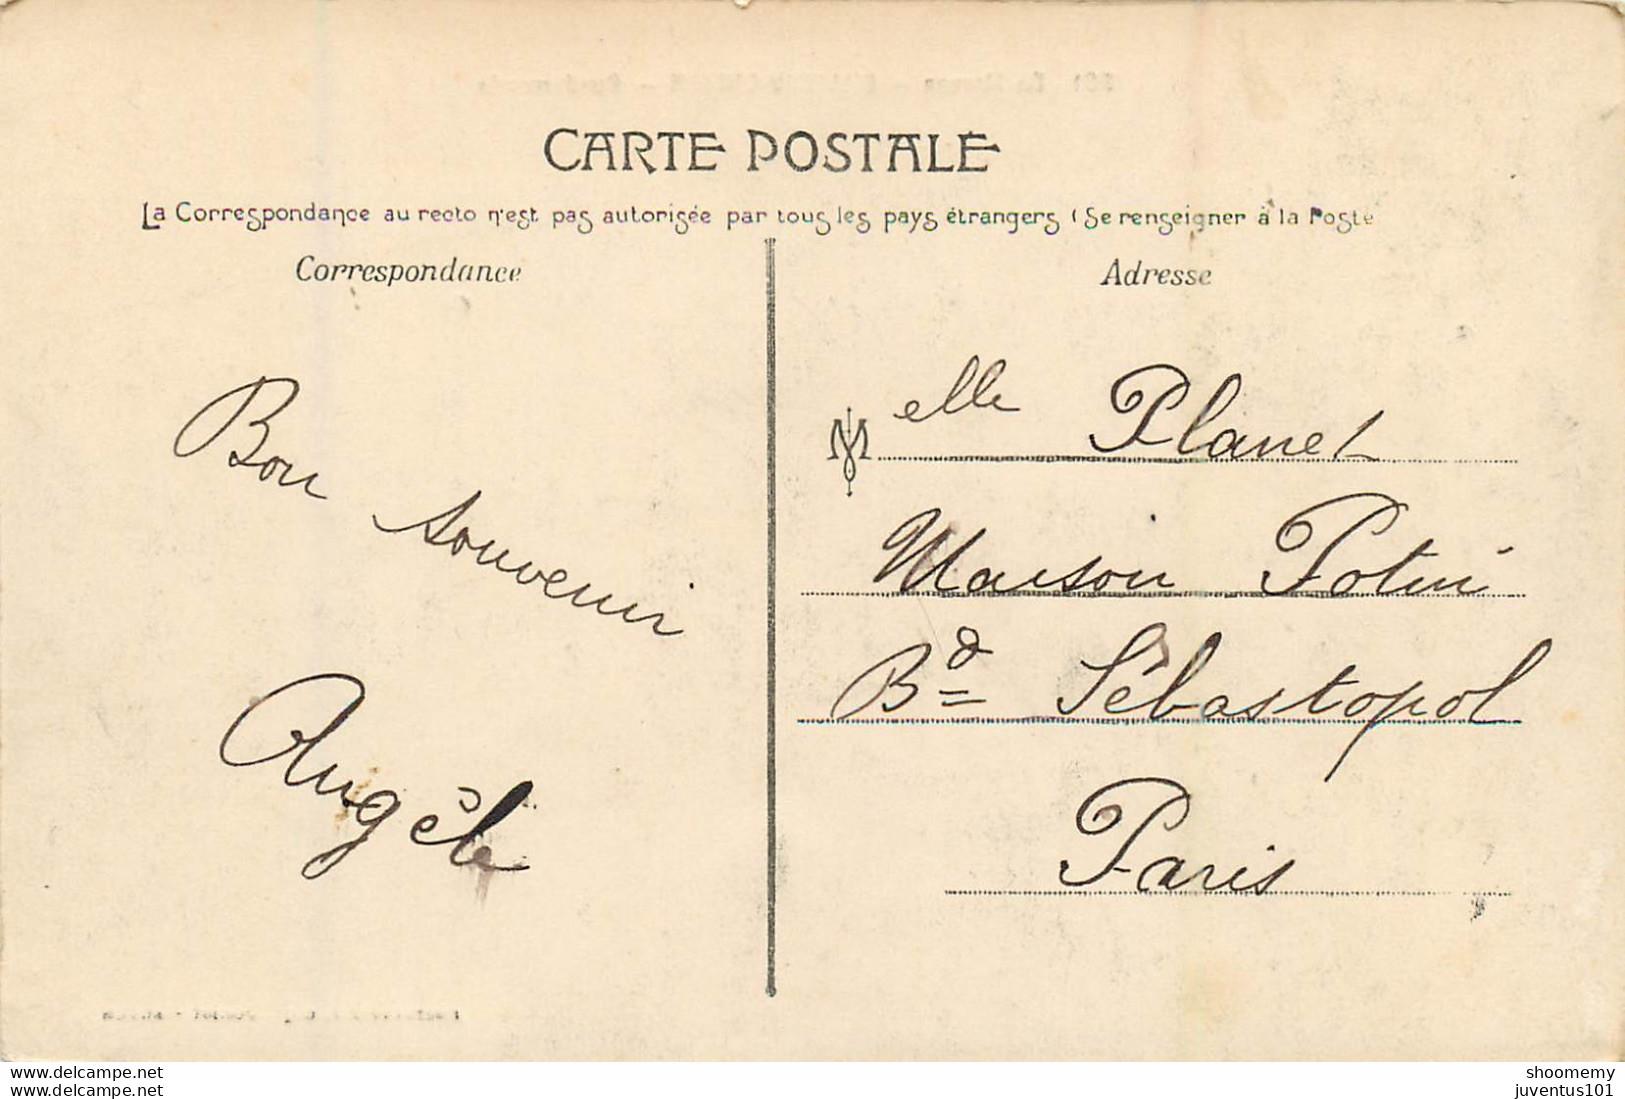 CARTE POSTALE
La Correspondance au recto n'est pas autorisée par tous les pays étrangers (Se renseigner à la Poste
Correspondance
Adresse
Bon souvenir
Angèle
Melle Planet
Maison Potin
Bd Sébastopol
Paris
delcampe.net
souvenir
shoomemy
juventus101